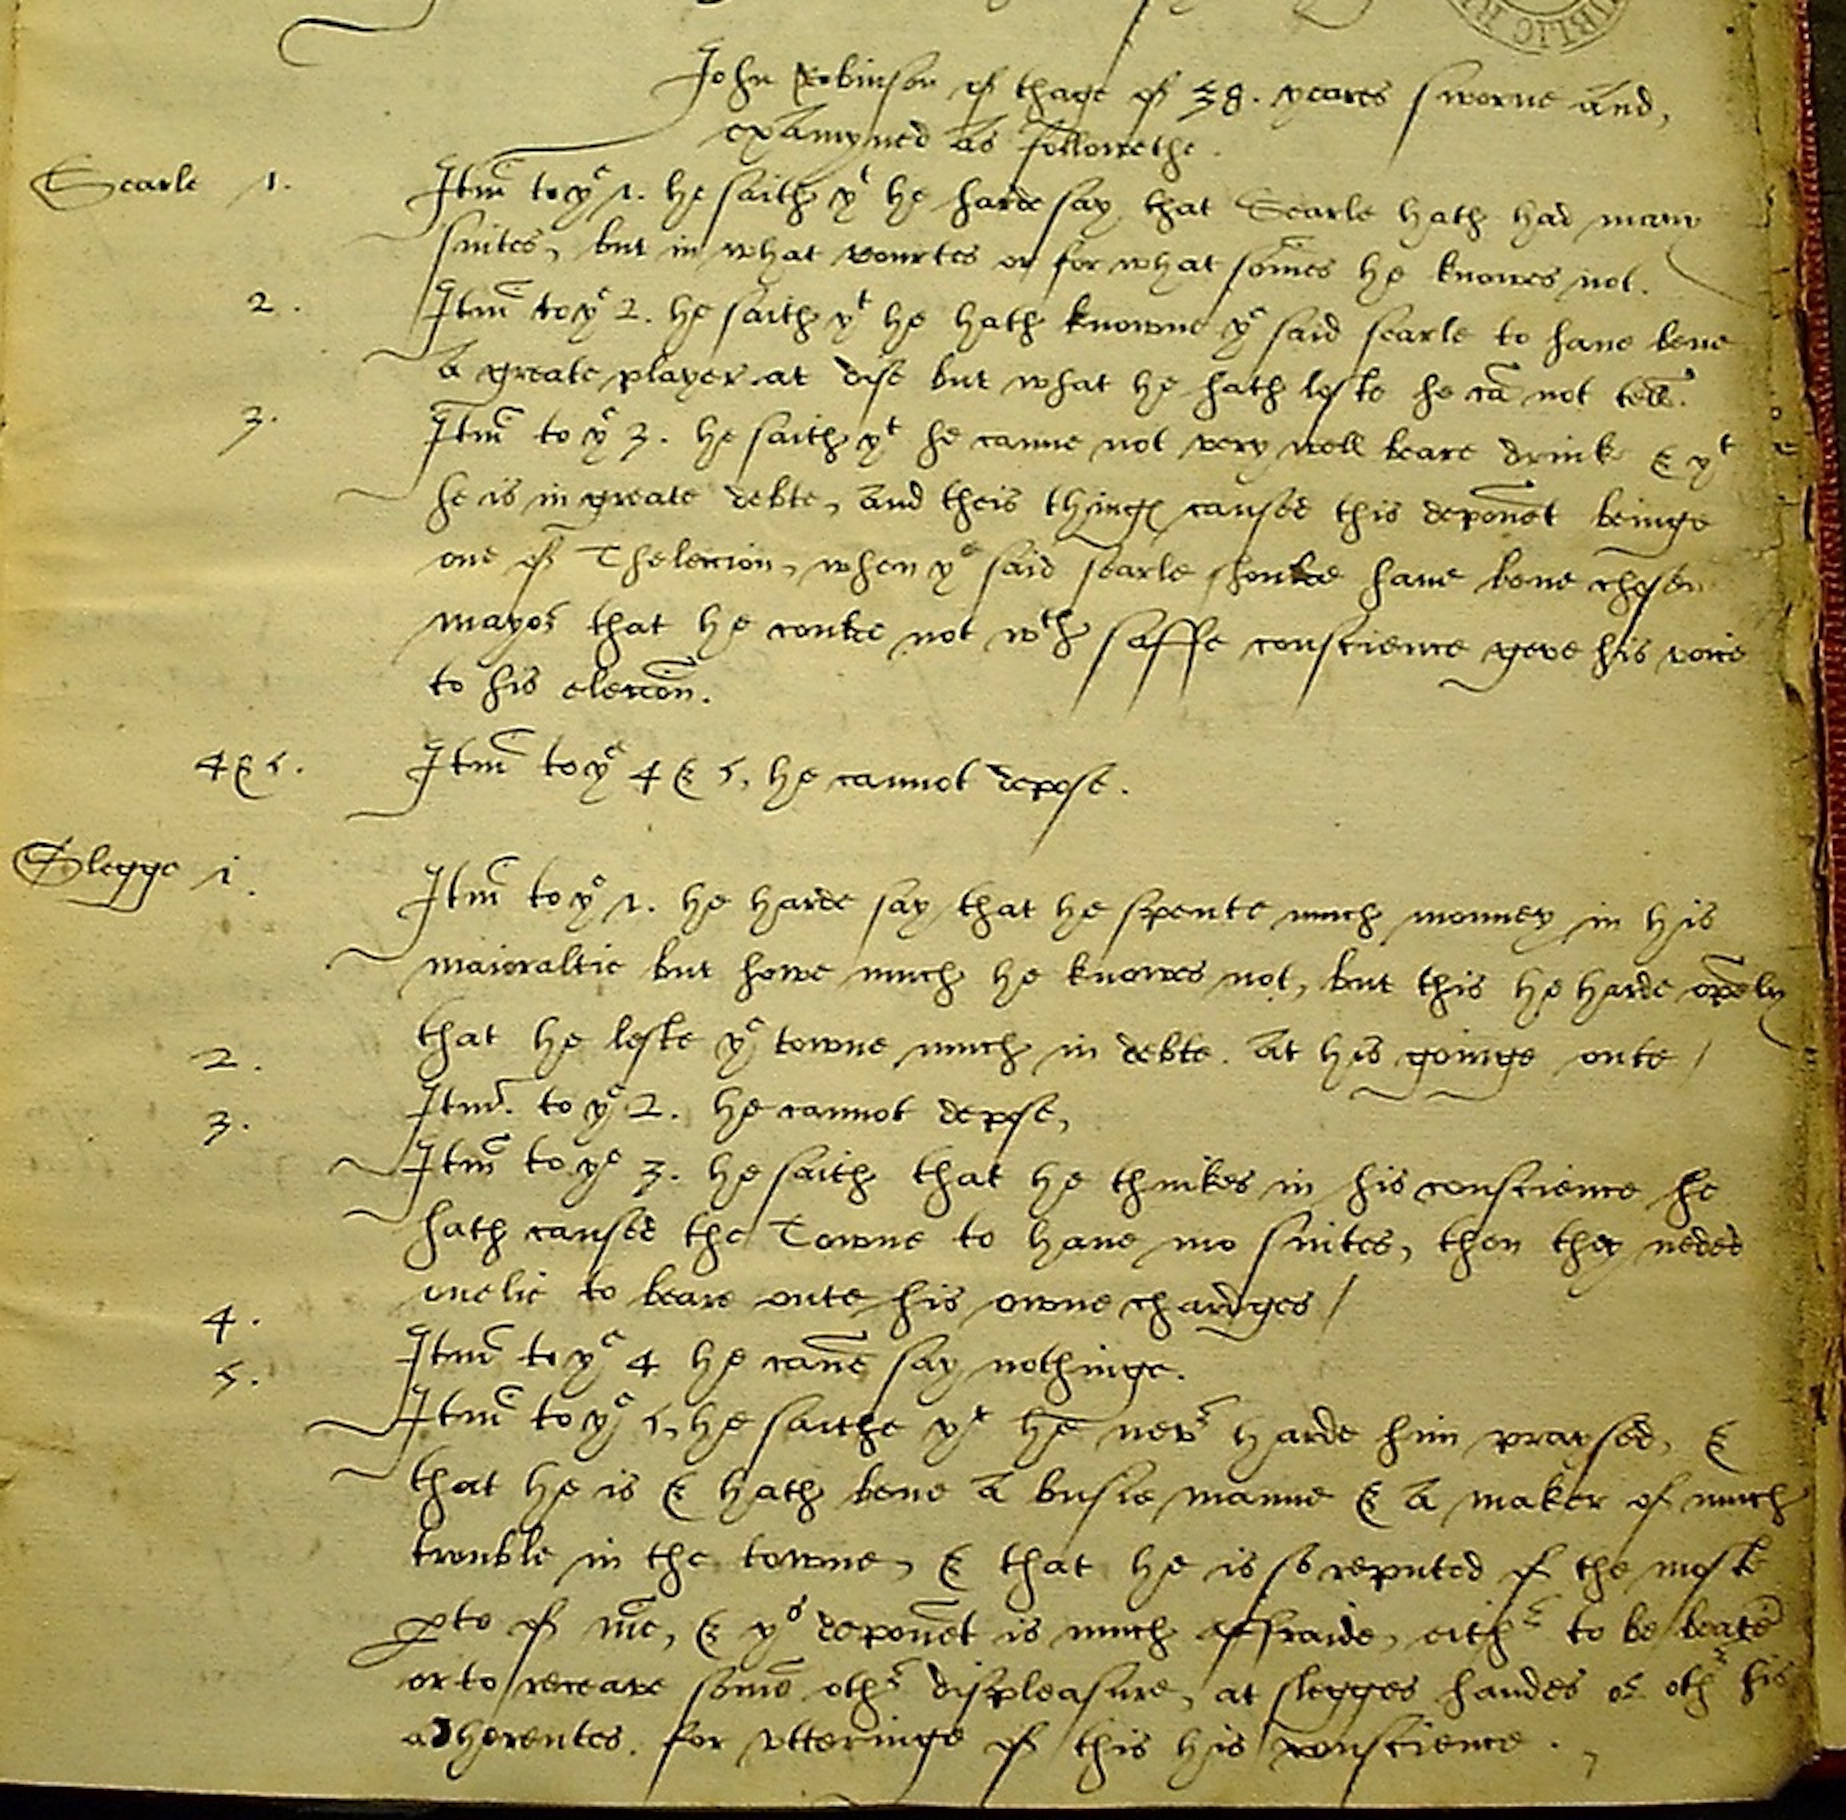 PUBLIC R
John Robinson of thage of 38. yeares sworne and,
examyned as followethe.
Searle 1. Itm̃ to yᵉ 1. he saith yᵗ he harde say that Searle hath had many
suites, but in what courtes or for what som̃es he knowes not.
2. Itm̃ to yᵉ 2. he saith yᵗ he hath knowne yᵉ said searle to haue bene
a greate player at dise but what he hath loste he cã not tell.
3. Itm̃ to yᵉ 3. he saith yᵗ he canne not very well beare drink & yᵗ
he is in greate debte, and theis things caused this deponẽt beinge
one of Thelection, when yᵉ said searle shoulde haue bene chosen
mayor that he coulde not wᵗʰ saffe conscience geve his voice
to his eleccõn.
4 & 5. Itm̃ to yᵉ 4 & 5, he cannot depose.
Slegge 1. Itm̃ to yᵉ 1. he harde say that he spente much monney in his
maioraltie but howe much he knowes not, but this he harde opẽly
that he lefte yᵉ towne much in debte. at his goinge oute /
2. Itm̃. to yᵉ 2. he cannot depose,
3. Itm̃ to yᵉ 3. he saith that he thinkes in his conscience he
hath caused the Towne to haue mo suites, then they neded
onelie to beare oute his owne chardges /
4. Itm̃ to yᵉ 4 he canñe say nothinge.
5. Itm̃ to yᵉ 5, he saithe yᵗ he nevʳ harde him praysed, &
that he is & hath bene a busie manne & a maker of much
trouble in the towne, & that he is so reputed of the moste
ꝑte of mẽ, & yˢ deponẽt is much affraide, eithʳ to be beatẽ
or to receave some othʳ displeasure, at slegges handes or othʳ his
adherentes. for vtteringe of this his conscience.